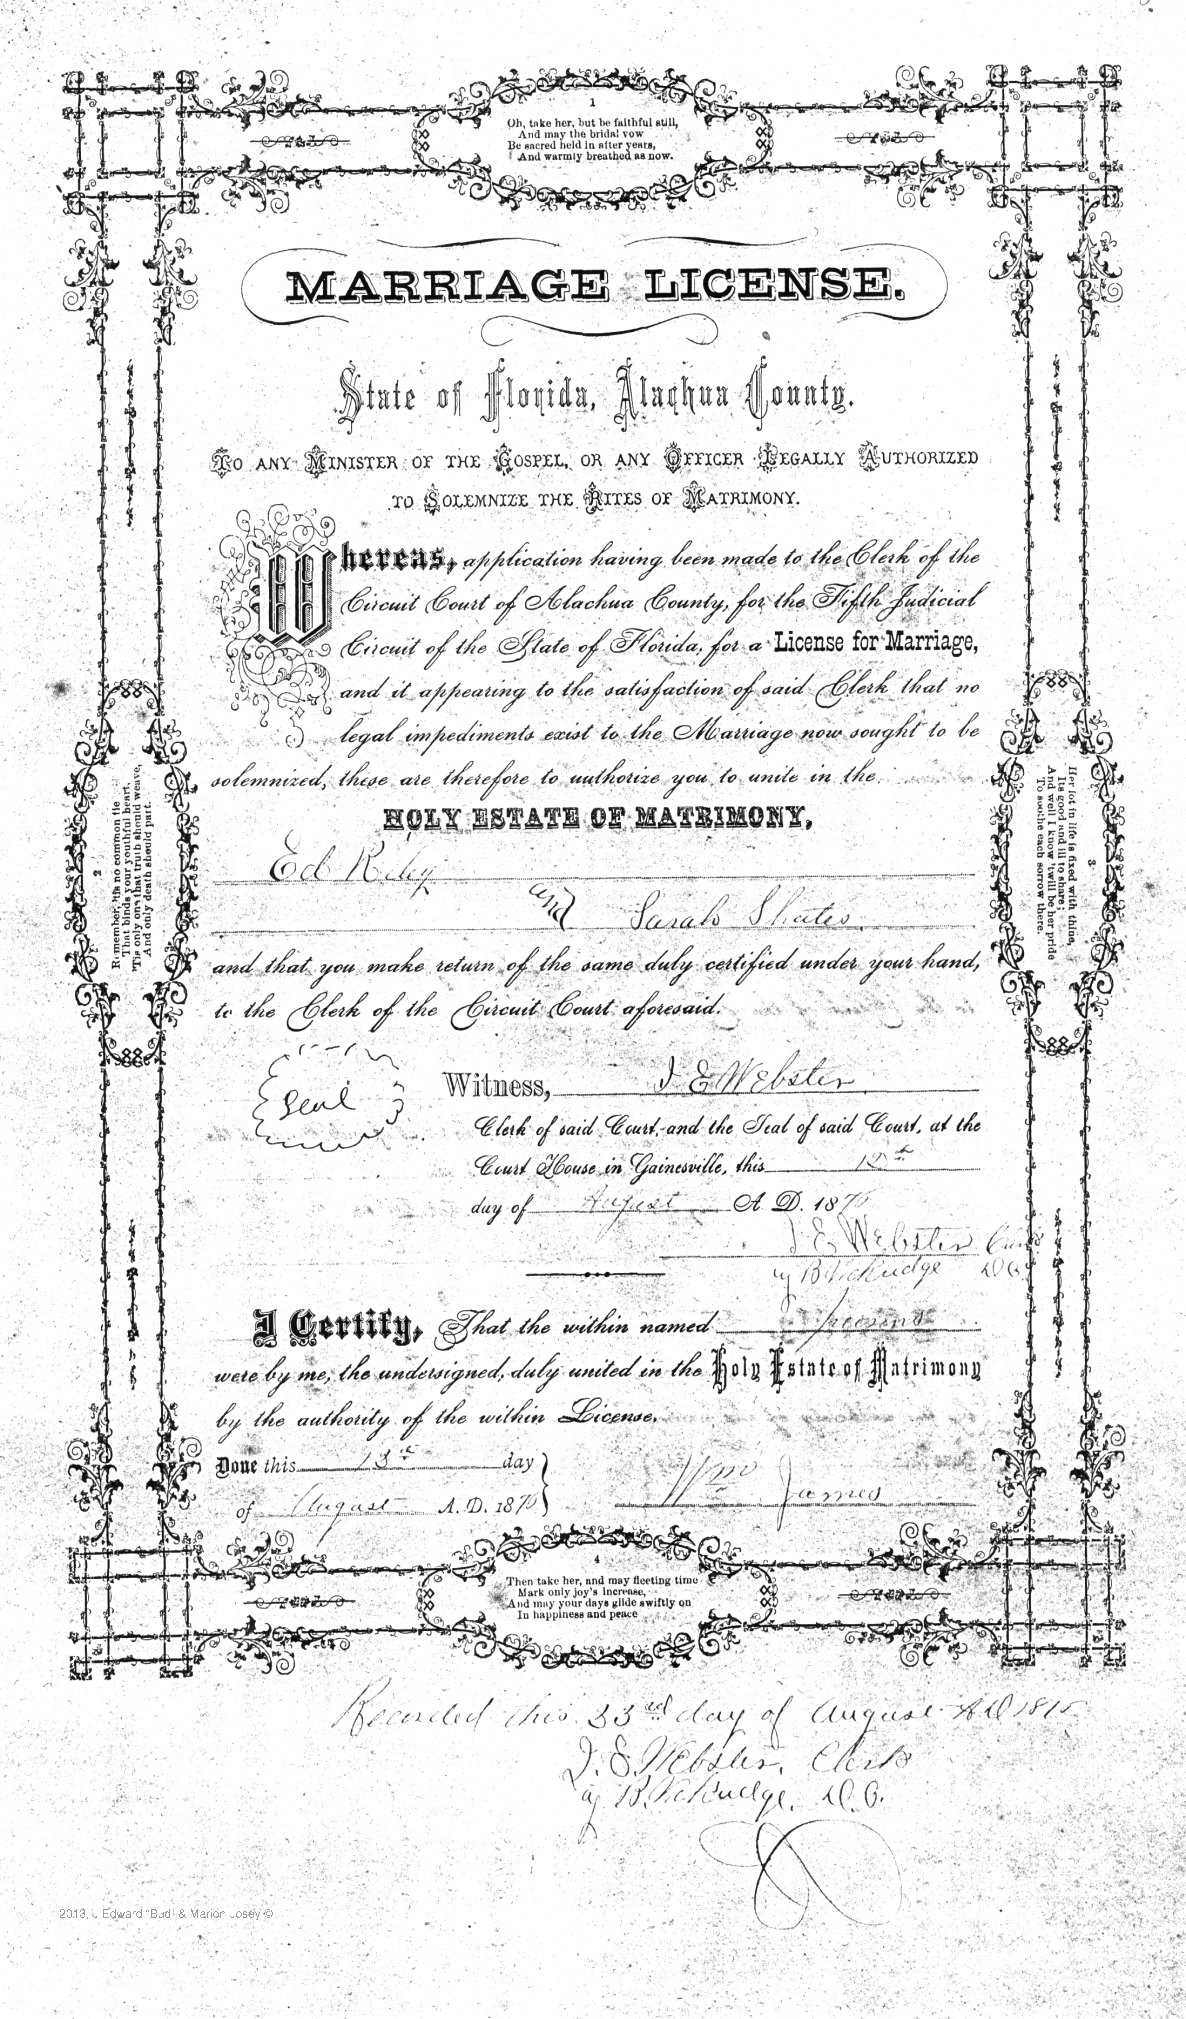 1
Oh, take her, but be faithful still,
And may the bridal vow
Be sacred held in after years,
And warmly breathed as now.
MARRIAGE LICENSE.
State of Florida, Alachua County.
TO ANY MINISTER OF THE GOSPEL, OR ANY OFFICER LEGALLY AUTHORIZED
TO SOLEMNIZE THE RITES OF MATRIMONY.
Whereas, application having been made to the Clerk of the
Circuit Court of Alachua County, for the Fifth Judicial
Circuit of the State of Florida, for a License for Marriage,
and it appearing to the satisfaction of said Clerk that no
legal impediments exist to the Marriage now sought to be
solemnized, these are therefore to authorize you to unite in the
HOLY ESTATE OF MATRIMONY,
Ed Riley
and Sarah Shates
and that you make return of the same duly certified under your hand,
to the Clerk of the Circuit Court aforesaid.
Seal
Witness, J E Webster
Clerk of said Court, and the Seal of said Court, at the
Court House in Gainesville, this
day of August A. D. 187
J E Webster Clerk
D.C.
I Certify, That the within named persons
were by me, the undersigned, duly united in the Holy Estate of Matrimony
by the authority of the within License.
Done this 13th day
of August A. D. 187
Wm James
2
Remember, 'tis no common tie
That binds your youthful heart,
'Tis only one that truth should weave,
And only death should part.
3
Her lot in life is fixed with thine,
Its good and ill to share;
And well I know 'twill be her pride
To soothe each sorrow there.
4
Then take her, and may fleeting time
Mark only joy's increase,
And may your days glide swiftly on
In happiness and peace
Recorded this 23rd day of August AD 187
J. E. Webster, Clerk
D.C.
2013, J Edward "Bud" & Marion Josey ©